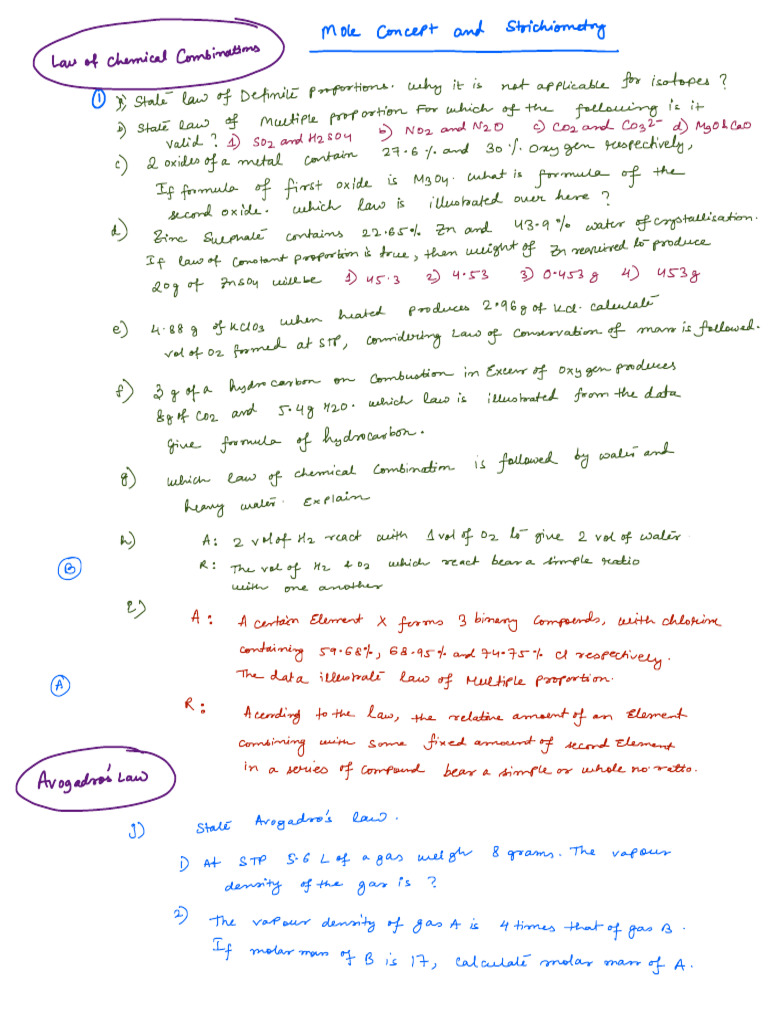 Mole Concept and Stoichiometry
Law of Chemical Combinations
① a) State law of Definite proportions. why it is not applicable for isotopes ?
b) State law of Multiple proportion For which of the following is it
valid ? 1) SO2 and H2SO4 b) NO2 and N2O c) CO2 and CO3²⁻ d) MgO & CaO
c) 2 oxides of a metal contain 27.6 % and 30 % oxygen respectively,
If formula of first oxide is M3O4. what is formula of the
second oxide. which law is illustrated over here ?
d) Zinc Sulphate contains 22.65% Zn and 43.9 % water of crystallisation.
If law of constant proportion is true, then weight of Zn required to produce
20g of ZnSO4 will be 1) 45.3 2) 4.53 3) 0.453 g 4) 453 g
e) 4.88 g of KClO3 when heated produces 2.96 g of KCl. calculate
vol of O2 formed at STP, considering Law of conservation of mass is followed.
f) 3 g of a hydrocarbon on Combustion in Excess of oxygen produces
8g of CO2 and 5.4g H2O. which law is illustrated from the data
give formula of hydrocarbon.
g) which law of chemical combination is followed by water and
heavy water. Explain
h) A: 2 vol of H2 react with 1 vol of O2 to give 2 vol of water
B R: The vol of H2 & O2 which react bear a simple ratio
with one another
i) A: A certain Element X forms 3 binary compounds, with chlorine
containing 59.68%, 68.95% and 74.75% Cl respectively.
The data illustrate law of Multiple proportion.
A
R: According to the law, the relative amount of an Element
combining with some fixed amount of second Element
in a series of compound bear a simple or whole no ratio.
Avogadro's Law
j) State Avogadro's law.
1) At STP 5.6 L of a gas weigh 8 grams. The vapour
density of the gas is ?
2) The vapour density of gas A is 4 times that of gas B.
If molar mass of B is 17, calculate molar mass of A.